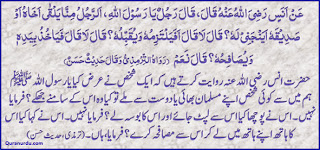 عَنْ أَنَسٍ رَضِیَ اللهُ عَنْهُ قَالَ، قَالَ رَجُلٌ یَا رَسُوْلَ اللهِ، اَلرَّجُلُ مِنَّا یَلْقٰی أَخَاهُ أَوْ
صَدِیْقَهُ أَیَنْحَنِیْ لَهُ؟ قَالَ لَا قَالَ أَفَیَلْتَزِمُهُ وَیُقَبِّلُهُ؟ قَالَ لَا قَالَ فَیَأْخُذُ بِیَدِهٖ
وَیُصَافِحُهُ؟ قَالَ نَعَمْ (رَوَاهُ التِّرْمِذِیُّ وَقَالَ حَدِیْثٌ حَسَنٌ)
حضرت انس رضی اللہ عنہ روایت کرتے ہیں کہ ایک شخص نے عرض کیا یا رسول اللہ ﷺ
ہم میں سے کوئی شخص اپنے مسلمان بھائی یا دوست سے ملے تو کیا وہ اس کے سامنے جھکے؟ فرمایا
نہیں۔ اس نے پوچھا کیا اس سے لپٹ جائے اور اس کا بوسہ لے؟ فرمایا نہیں۔ اس نے کہا کیا اس
کا ہاتھ اپنے ہاتھ میں لے کر اس سے مصافحہ کرے؟ فرمایا، ہاں۔ (ترمذی، حدیث حسن)
Quranurdu.com